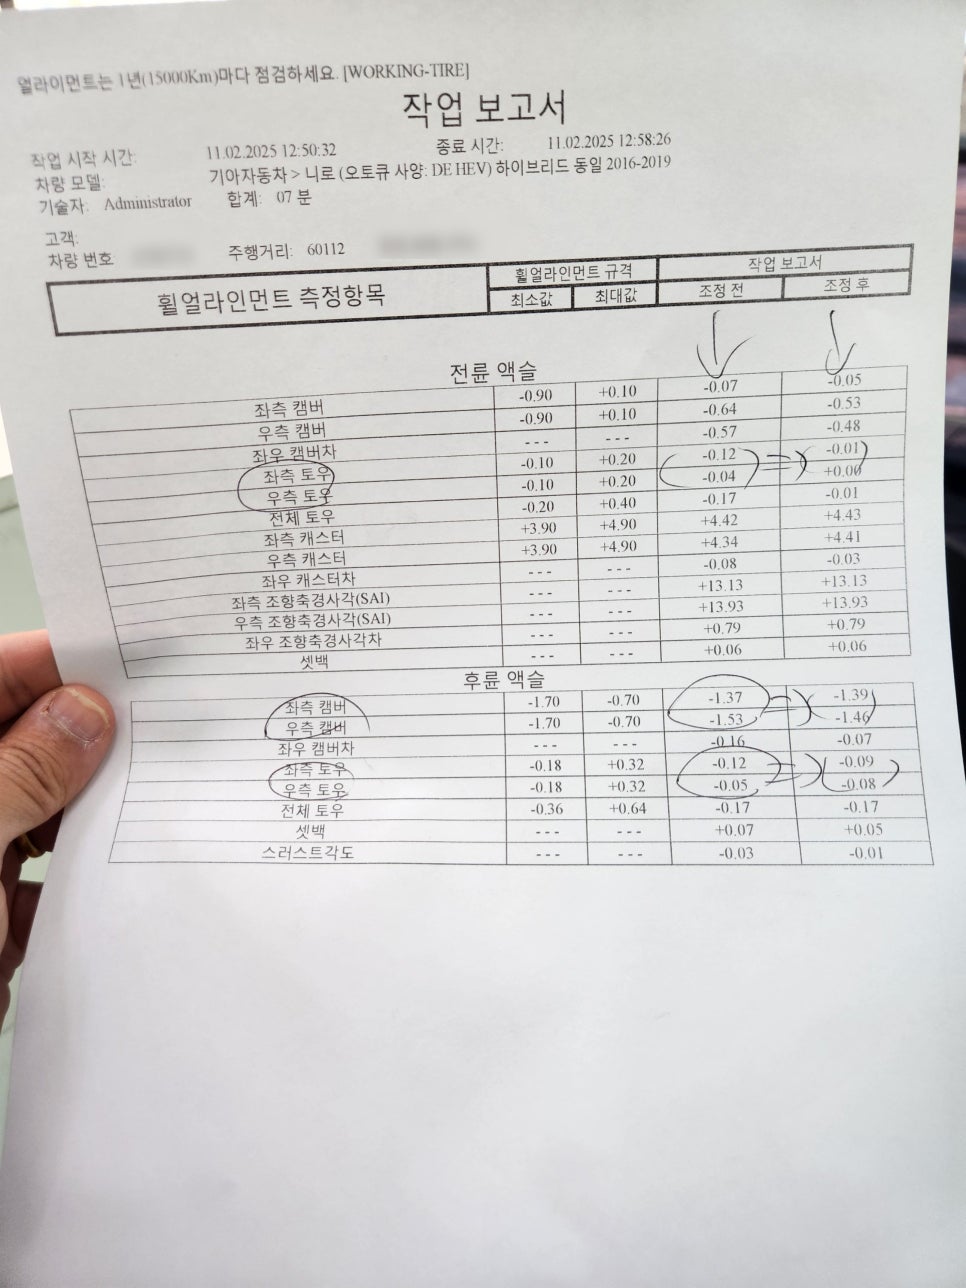 얼라이먼트는 1년(15000Km)마다 점검하세요. [WORKING-TIRE]
작업 보고서
작업 시작 시간: 11.02.2025 12:50:32 종료 시간: 11.02.2025 12:58:26
차량 모델: 기아자동차 > 니로 (오토큐 사양: DE HEV) 하이브리드 동일 2016-2019
기술자: Administrator 합계: 07 분
고객:
차량 번호 주행거리: 60112
휠얼라인먼트 측정항목 휠얼라인먼트 규격 작업 보고서
최소값 최대값 조정 전 조정 후
전륜 액슬
좌측 캠버 -0.90 +0.10 -0.07 -0.05
우측 캠버 -0.90 +0.10 -0.64 -0.53
좌우 캠버차 --- --- -0.57 -0.48
좌측 토우 -0.10 +0.20 -0.12 -0.01
우측 토우 -0.10 +0.20 -0.04 +0.00
전체 토우 -0.20 +0.40 -0.17 -0.01
좌측 캐스터 +3.90 +4.90 +4.42 +4.43
우측 캐스터 +3.90 +4.90 +4.34 +4.41
좌우 캐스터차 --- --- -0.08 -0.03
좌측 조향축경사각(SAI) --- --- +13.13 +13.13
우측 조향축경사각(SAI) --- --- +13.93 +13.93
좌우 조향축경사각차 --- --- +0.79 +0.79
셋백 --- --- +0.06 +0.06
후륜 액슬
좌측 캠버 -1.70 -0.70 -1.37 -1.39
우측 캠버 -1.70 -0.70 -1.53 -1.46
좌우 캠버차 --- --- -0.16 -0.07
좌측 토우 -0.18 +0.32 -0.12 -0.09
우측 토우 -0.18 +0.32 -0.05 -0.08
전체 토우 -0.36 +0.64 -0.17 -0.17
셋백 --- --- +0.07 +0.05
스러스트각도 --- --- -0.03 -0.01